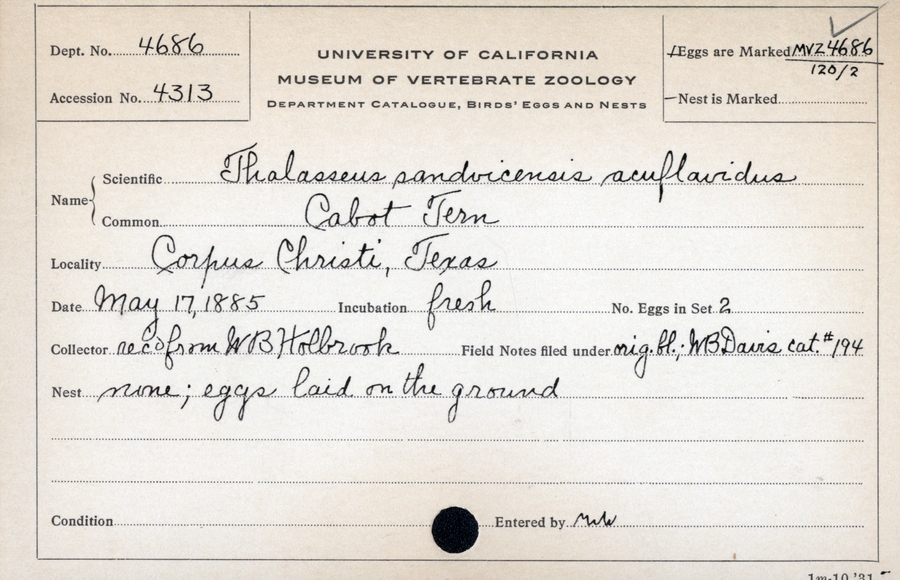 Dept. No. 4686
Accession No. 4313
UNIVERSITY OF CALIFORNIA
MUSEUM OF VERTEBRATE ZOOLOGY
DEPARTMENT CATALOGUE, BIRDS' EGGS AND NESTS
Eggs are Marked MVZ 4686
120/2
Nest is Marked
Name
Scientific Thalasseus sandvicensis acuflavidus
Common Cabot Tern
Locality Corpus Christi, Texas
Date May 17, 1885 Incubation fresh No. Eggs in Set 2
Collector rec'd from WB Holbrook Field Notes filed under orig. bl.; WB Davis cat. #194
Nest none; eggs laid on the ground
Condition Entered by
1m-10,'31